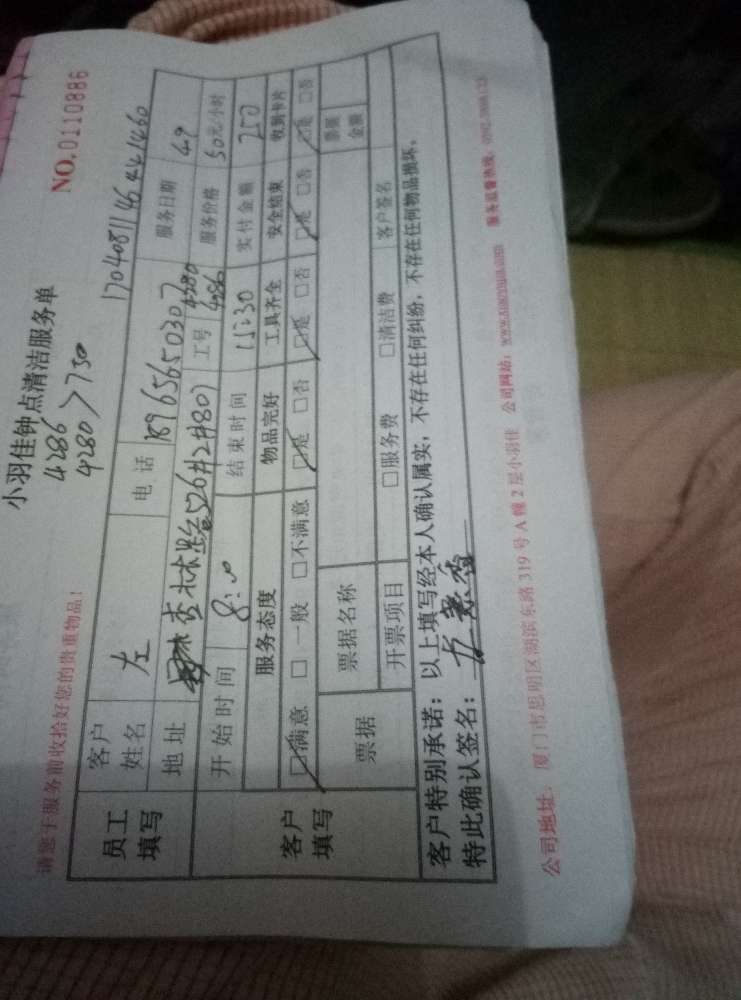 小羽佳钟点清洁服务单
NO.0110886
请您于服务前收拾好您的贵重物品！
4286
4280 > 750
17040811464441460
员工填写 客户姓名 左 电话 18965650307 服务日期 4.9
地址 杏林 526#2#807 工号 4280 4286 服务价格 50元/小时
客户填写 开始时间 8:00 结束时间 15:30 实付金额 750
服务态度 物品完好 工具齐全 安全结束 收到卡片
☑满意 □一般 □不满意 ☑是 □否 ☑是 □否 ☑是 □否 ☑是 □否
票据 票据名称 票据金额
开票项目 □服务费 □清洁费 客户签名
客户特别承诺：以上填写经本人确认属实，不存在任何纠纷，不存在任何物品损坏。
特此确认签名：
公司地址：厦门市思明区湖滨东路319号A幢2层小羽佳 公司网站： 服务监督热线：